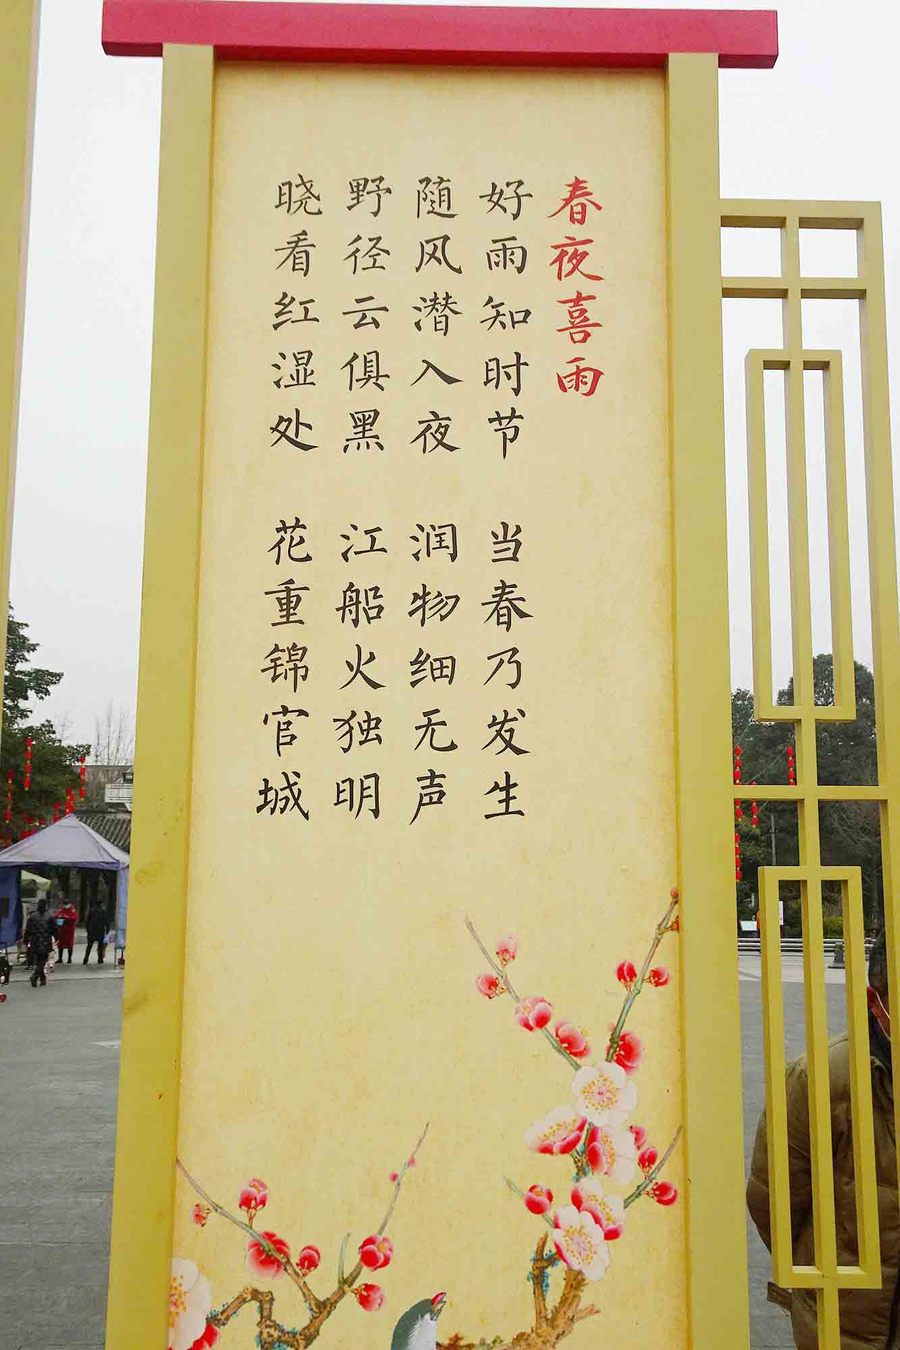 春夜喜雨
好雨知时节 当春乃发生
随风潜入夜 润物细无声
野径云俱黑 江船火独明
晓看红湿处 花重锦官城